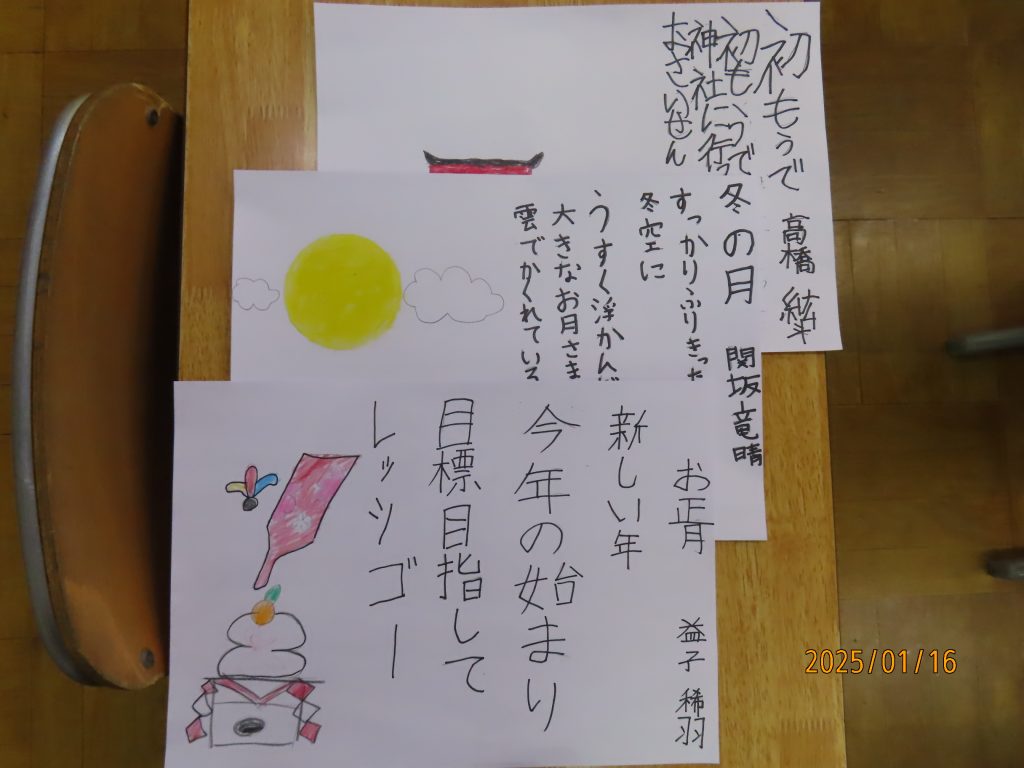 初もうで
高橋 結斗
初もうで
神社に行
おさいせん
冬の月
関坂竜晴
すっかりふりきった
冬空に
うすく浮かんだ
大きなお月さま
雲でかくれている
お正月
益子 稀羽
新しい年
今年の始まり
目標目指して
レッツゴー
2025/01/16